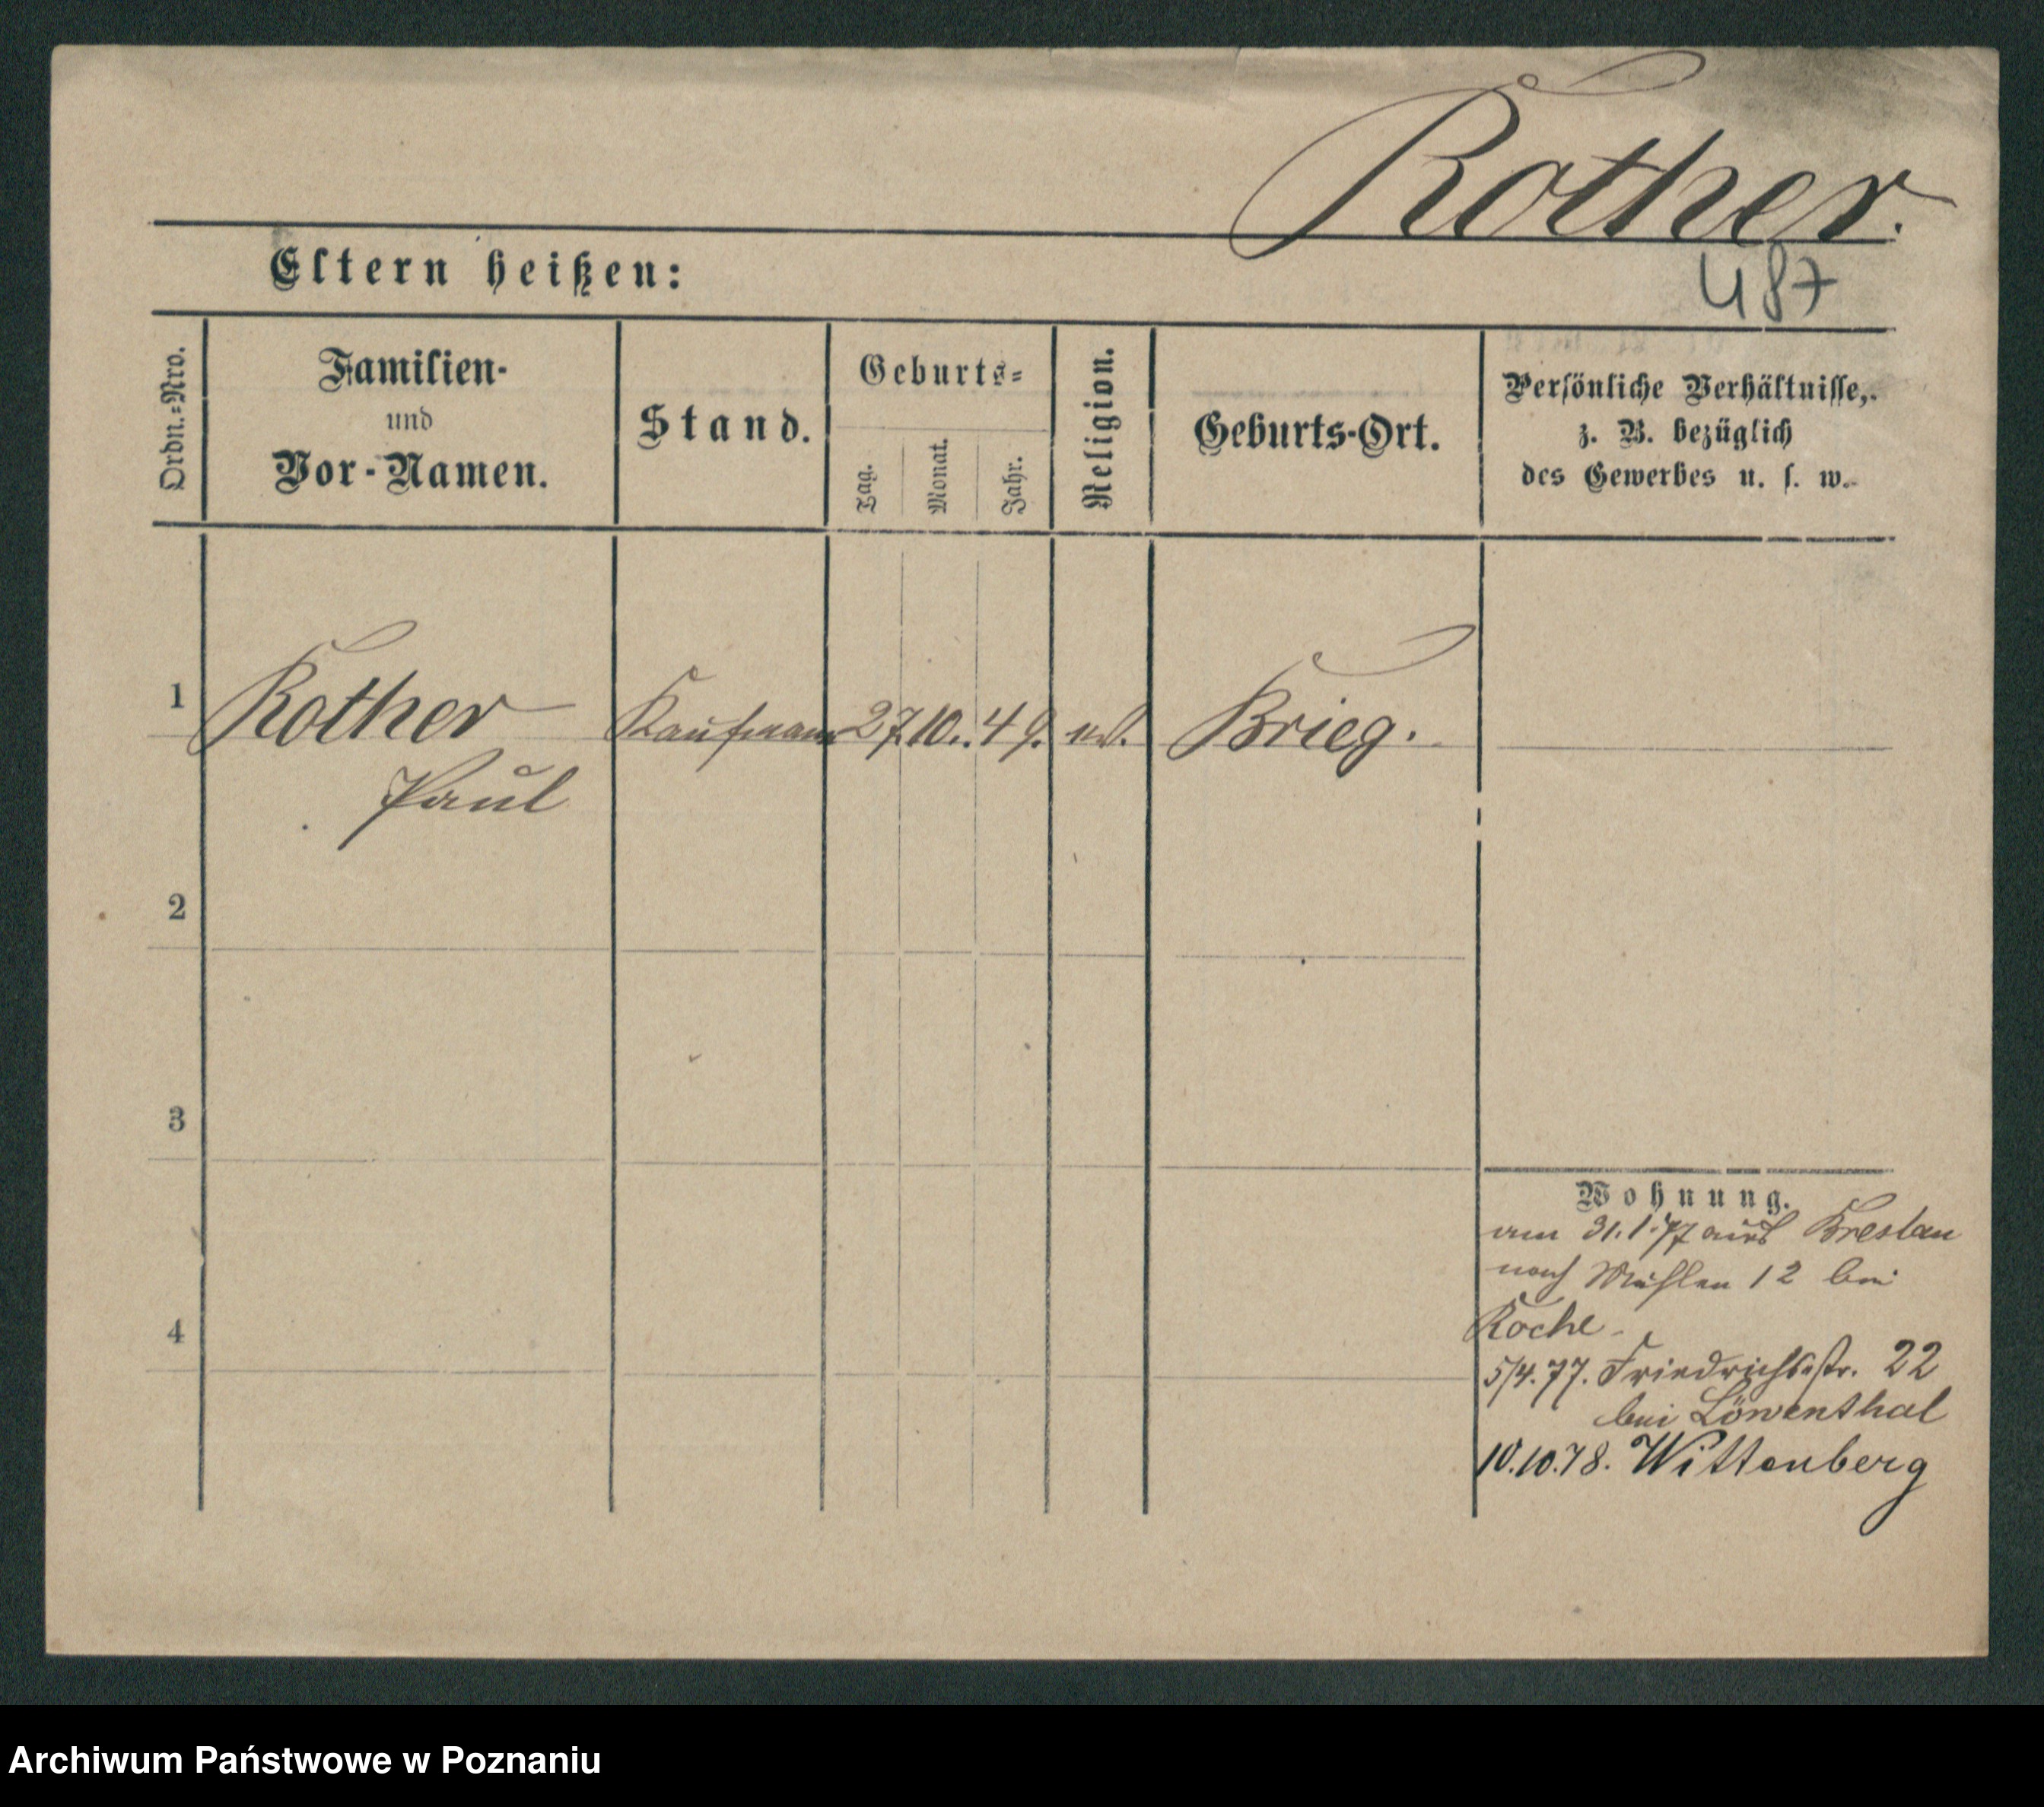 Rother.
487
Eltern heißen:
Ordn.=Nro.
Familien-
und
Vor-Namen.
Stand.
Geburts=
Tag.
Monat.
Jahr.
Religion.
Geburts-Ort.
Persönliche Verhältnisse,
z. B. bezüglich
des Gewerbes u. s. w.
1 Rother Kaufmann 27. 10. 49. ev. Brieg.
Paul
2
3
4
Wohnung.
am 31.1.77 aus Breslau
nach Mühlen 12 bei
Roche
5/4.77. Friedrichsstr. 22
bei Löwenthal
10.10.78. Wittenberg
Archiwum Państwowe w Poznaniu